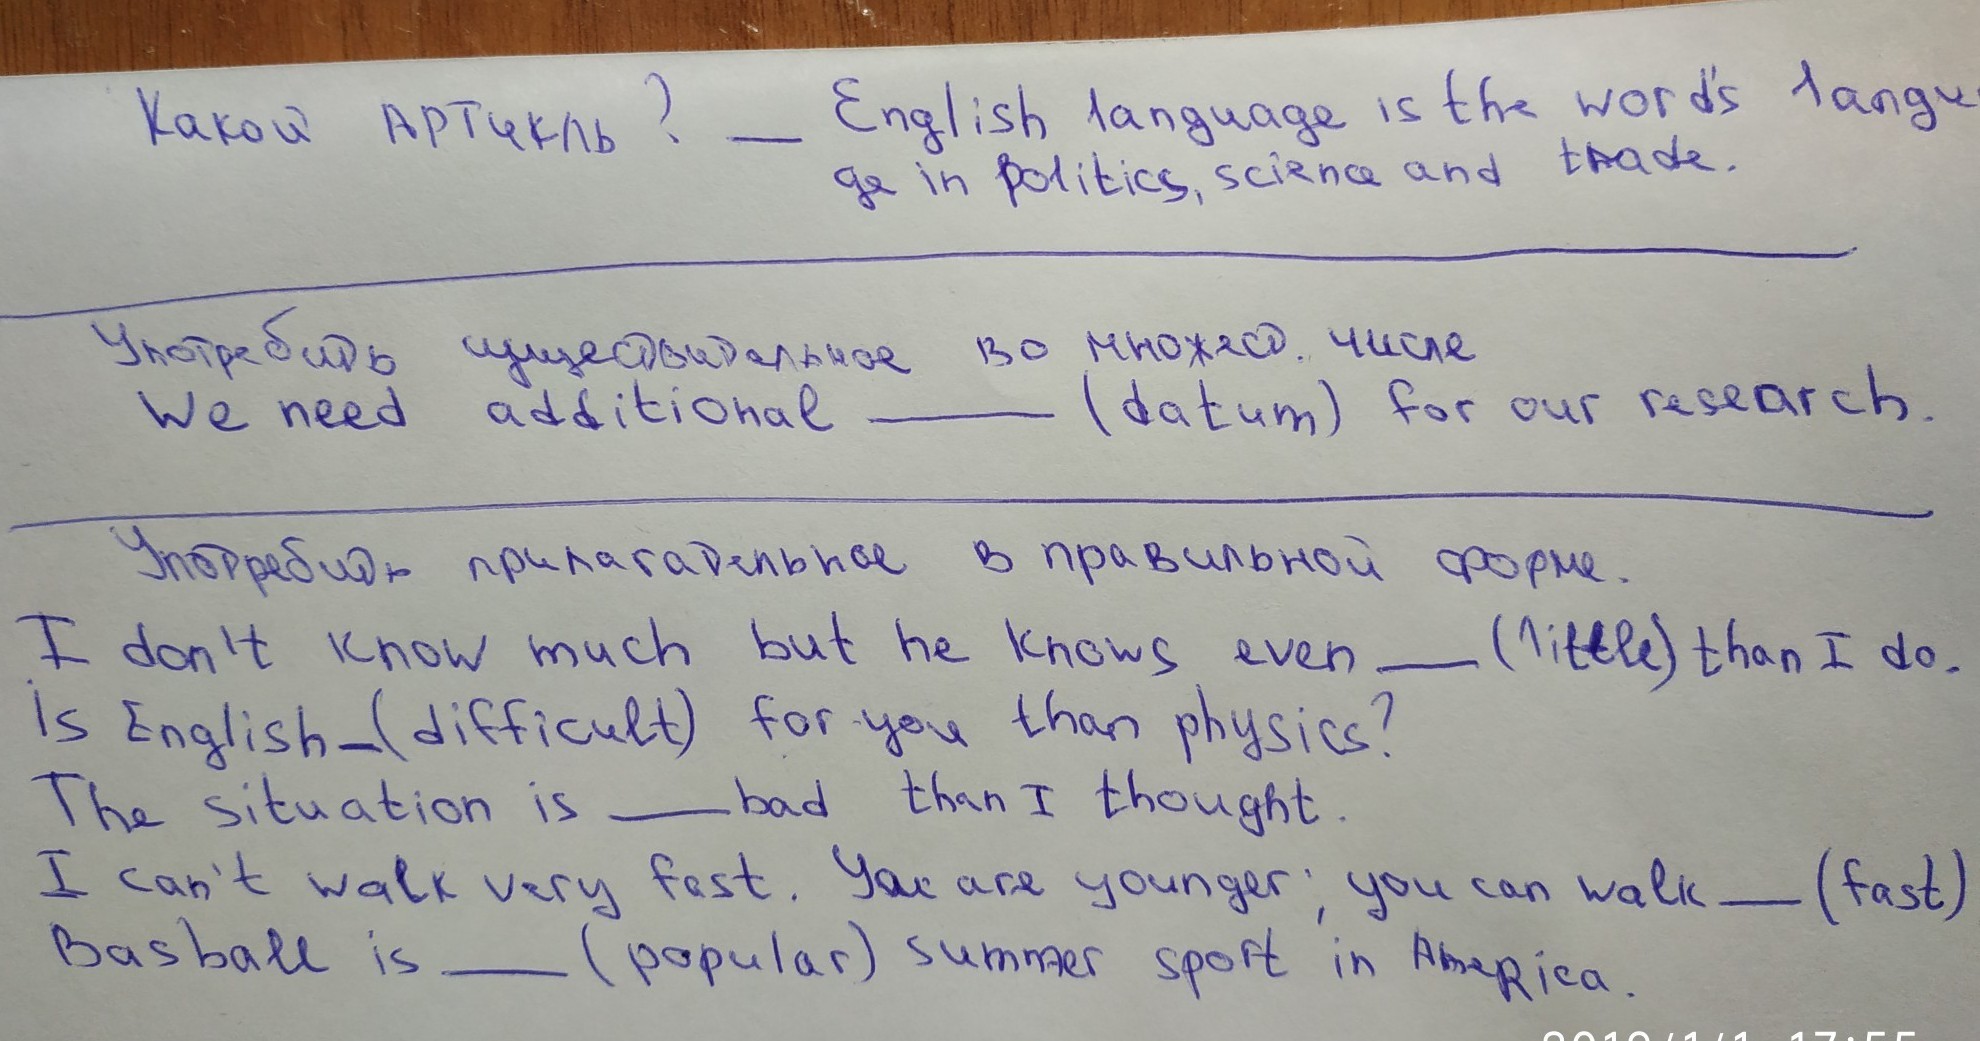 Какой АРТИКЛЬ? __ English language is the word's langua
ge in politics, science and trade.
Употребить существительное во множест. числе
We need additional ____ (datum) for our research.
Употребить прилагательное в правильной форме.
I don't know much but he knows even __ (little) than I do.
is English _ (difficult) for you than physics?
The situation is ___ bad than I thought.
I can't walk very fast. You are younger; you can walk __ (fast)
Basball is ___ (popular) summer sport in America.
2019/1/1 17:55